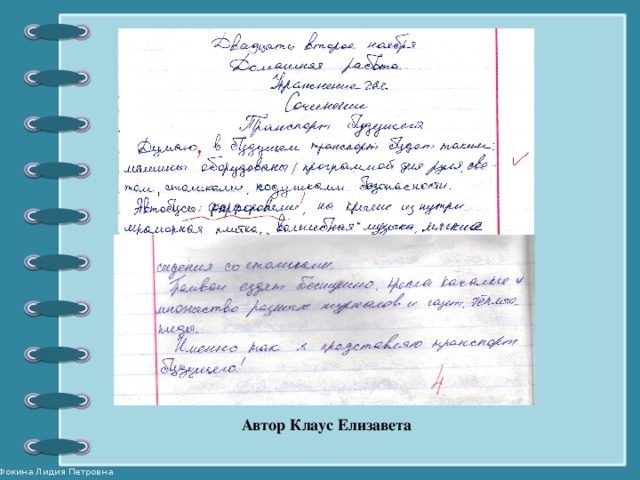 Двадцать второе ноября
Домашняя работа.
Упражнение
Сочинение
Транспорт будущего.
Думаю, в будущем транспорт будет таким:
машины оборудованы программой для руля, све-
том, столиками, подушками безопасности.
Автобусы: фарфоровые, на крыше изнутри
мраморная плитка, "волшебная" музыка, мягкие
сидения со столиками.
Трамваи ездят бесшумно, кресла качалые и
множество разных журналов и газет, тёплые
пледы.
Именно так я представляю транспорт
будущего!
4
Автор Клаус Елизавета
Фокина Лидия Петровна